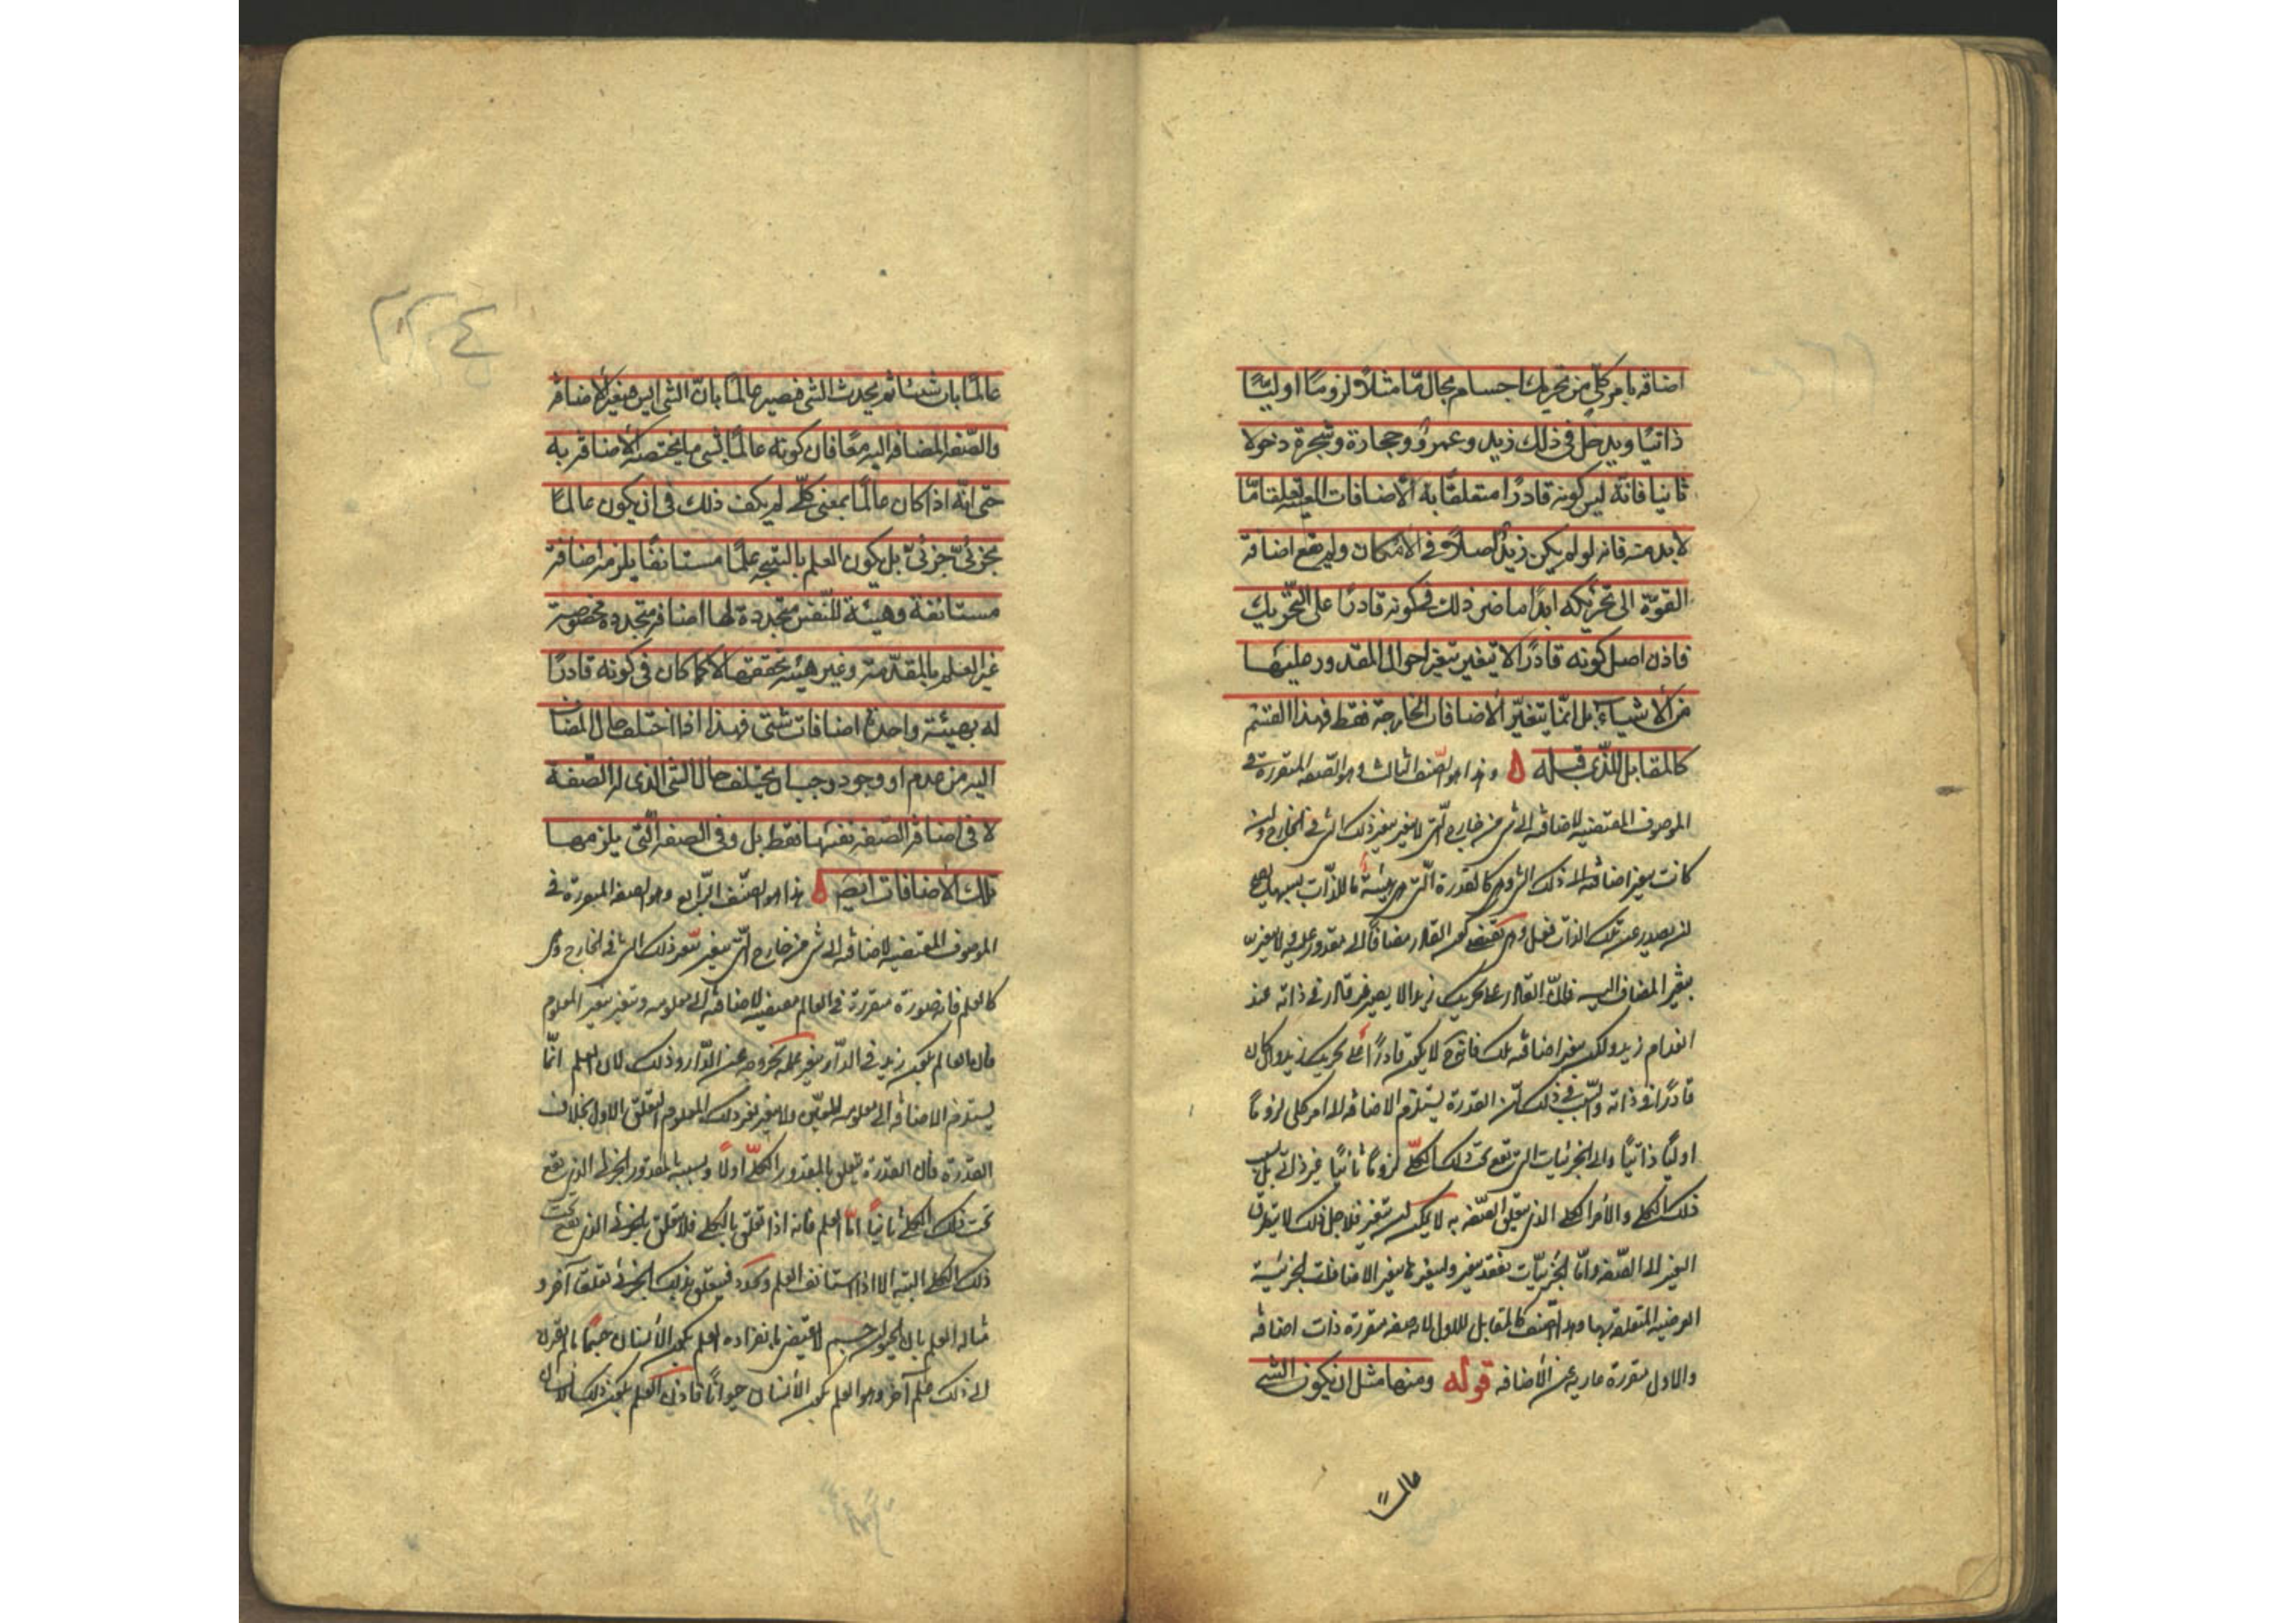 اضافه بامر كلّي من تحريك اجسام بحال ما مثلاً لزومًا اوليًّا
ذاتيًا ويدخل في ذلك زيد وعمرو وحجارة وشجرة دخولا
ثانيا فانّه ليس كونه قادرًا متعلقًا به الاضافات المعينه تعلقا مّا
لابد منه فانه لو لم يكن زيدٌ اصلاً في الامكان ولم تقع اضافة
القوّة الى تحريكه ابدًا ما ضر ذلك في كونه قادرًا على التحريك
فاذن اصل كونه قادرًا لا يتغير بتغير احوال المقدور عليها
من الاشياء بل انّما يتغيّر الاضافات الخارجة فقط فهذا القسم
كالمقابل للّذي قبله ه وهذا هو الصّنف الثالث وهو الصّفه المتقررة في
الموصوف المقتضيه لاضافه الى شي من خارج الّتي لا يتغير بتغير ذلك الشي في الخارج وان
كانت يتغير اضافته الى ذلك الشي وهي كالقدرة الّتي هي هيئة ما للذّات بسببها يصح
ان يصدر عن تلك الذات فعل وهي تقتضي كون القادر مضافًا الى مقدور عليه ولا يتغير
بتغير المضاف اليه فانّ القادر على تحريك زيد لا يصير غير قادر في ذاته عند
انعدام زيد ولكن يتغير اضافته تلك فانه ح لا يكون قادرًا على تحريك زيد وان كان
قادرًا في ذاته والسّبب في ذلك انّ القدرة يستلزم الاضافه الى امر كلى لزومًا
اوليًا ذاتيًا والى الجزئيات التي تقع تحت ذلك الكلّي لزومًا ثانيًا غير ذاتي بل بسبب
ذلك الكلي والامر الكلي الذي يتعلق الصّفه به لا يمكن ان يتغير فلاجل ذلك لا يتطرق
التغير الى الصّفه وامّا الجزئيّات فقد يتغير وبتغيرها يتغير الاضافات الجزئيّة
العرضيه المتعلقة بها وهذا الصّنف كالمقابل للاول لانه صفه متقررة ذات اضافه
والاول متقررة عارية عن الاضافه قوله ومنها مثل ان يكون الشي
عالمًا
عالمًا بان شيئا ثم يحدث الشي فيصير عالمًا بانّ الشي ايس فتغير الاضافة
والصّفه المضافه اليه معًا فان كونه عالمًا بشي ما يختص الاضافة به
حتى انّه اذا كان عالمًا بمعنى كلّي لم يكف ذلك في ان يكون عالمًا
بجزئيّ جزئيّ بل يكون العلم بالنتيجه علمًا مستانفًا يلزمه اضافة
مستانفة وهيئة للنّفس متجددة لها اضافة متجددة مخصوصة
غير العلم بالمقدّمة وغير هيئة تحققها لا كما كان في كونه قادرًا
له بهيئة واحدة اضافات شتى فهذا اذا اختلف حال المضاف
اليه من عدم او وجود وجب ان يختلف حال الشي الذي له الصّفة
لا في اضافة الصّفه نفسها فقط بل وفي الصفه الّتي يلزمها
تلك الاضافات ايضًا ه هذا هو الصّنف الرّابع وهو الصفه المتقررة في
الموصوف المقتضيه لاضافه الى شي من خارج الّتي يتغير بتغير ذلك الشي في الخارج وهي
كالعلم فانه صورة متقررة في العالم مقتضيه لاضافه الى معلومه ويتغير بتغير المعلوم
فان العالم بكون زيد في الدّار يتغير علمه بخروجه عن الدّار وذلك لان العلم انّما
يستلزم الاضافه الى معلومه المعيّن ولا يتغير بغير ذلك المعلوم التعلق الاول بخلاف
القدرة فان القدرة تتعلق بالمقدور الكلّي اولاً وبسببه بالمقدور الجزئي الذي يقع
تحت ذلك الكلي ثانيًا امّا العلم فانه اذا تعلق بالكلي فلا يتعلق بالجزئي الذي يقع تحت
ذلك الكلي البتة الا اذا استانف العلم وتجدد فيتعلق بذلك الجزئي تعلقا آخر و
مثاله العلم بان الحيوان جسم لا يقتضي بانفراده العلم بكون الانسان جسمًا ما لم يقرن
الى ذلك علم آخر وهو العلم بكون الانسان حيوانًا فاذن العلم بكون ذلك الانسان